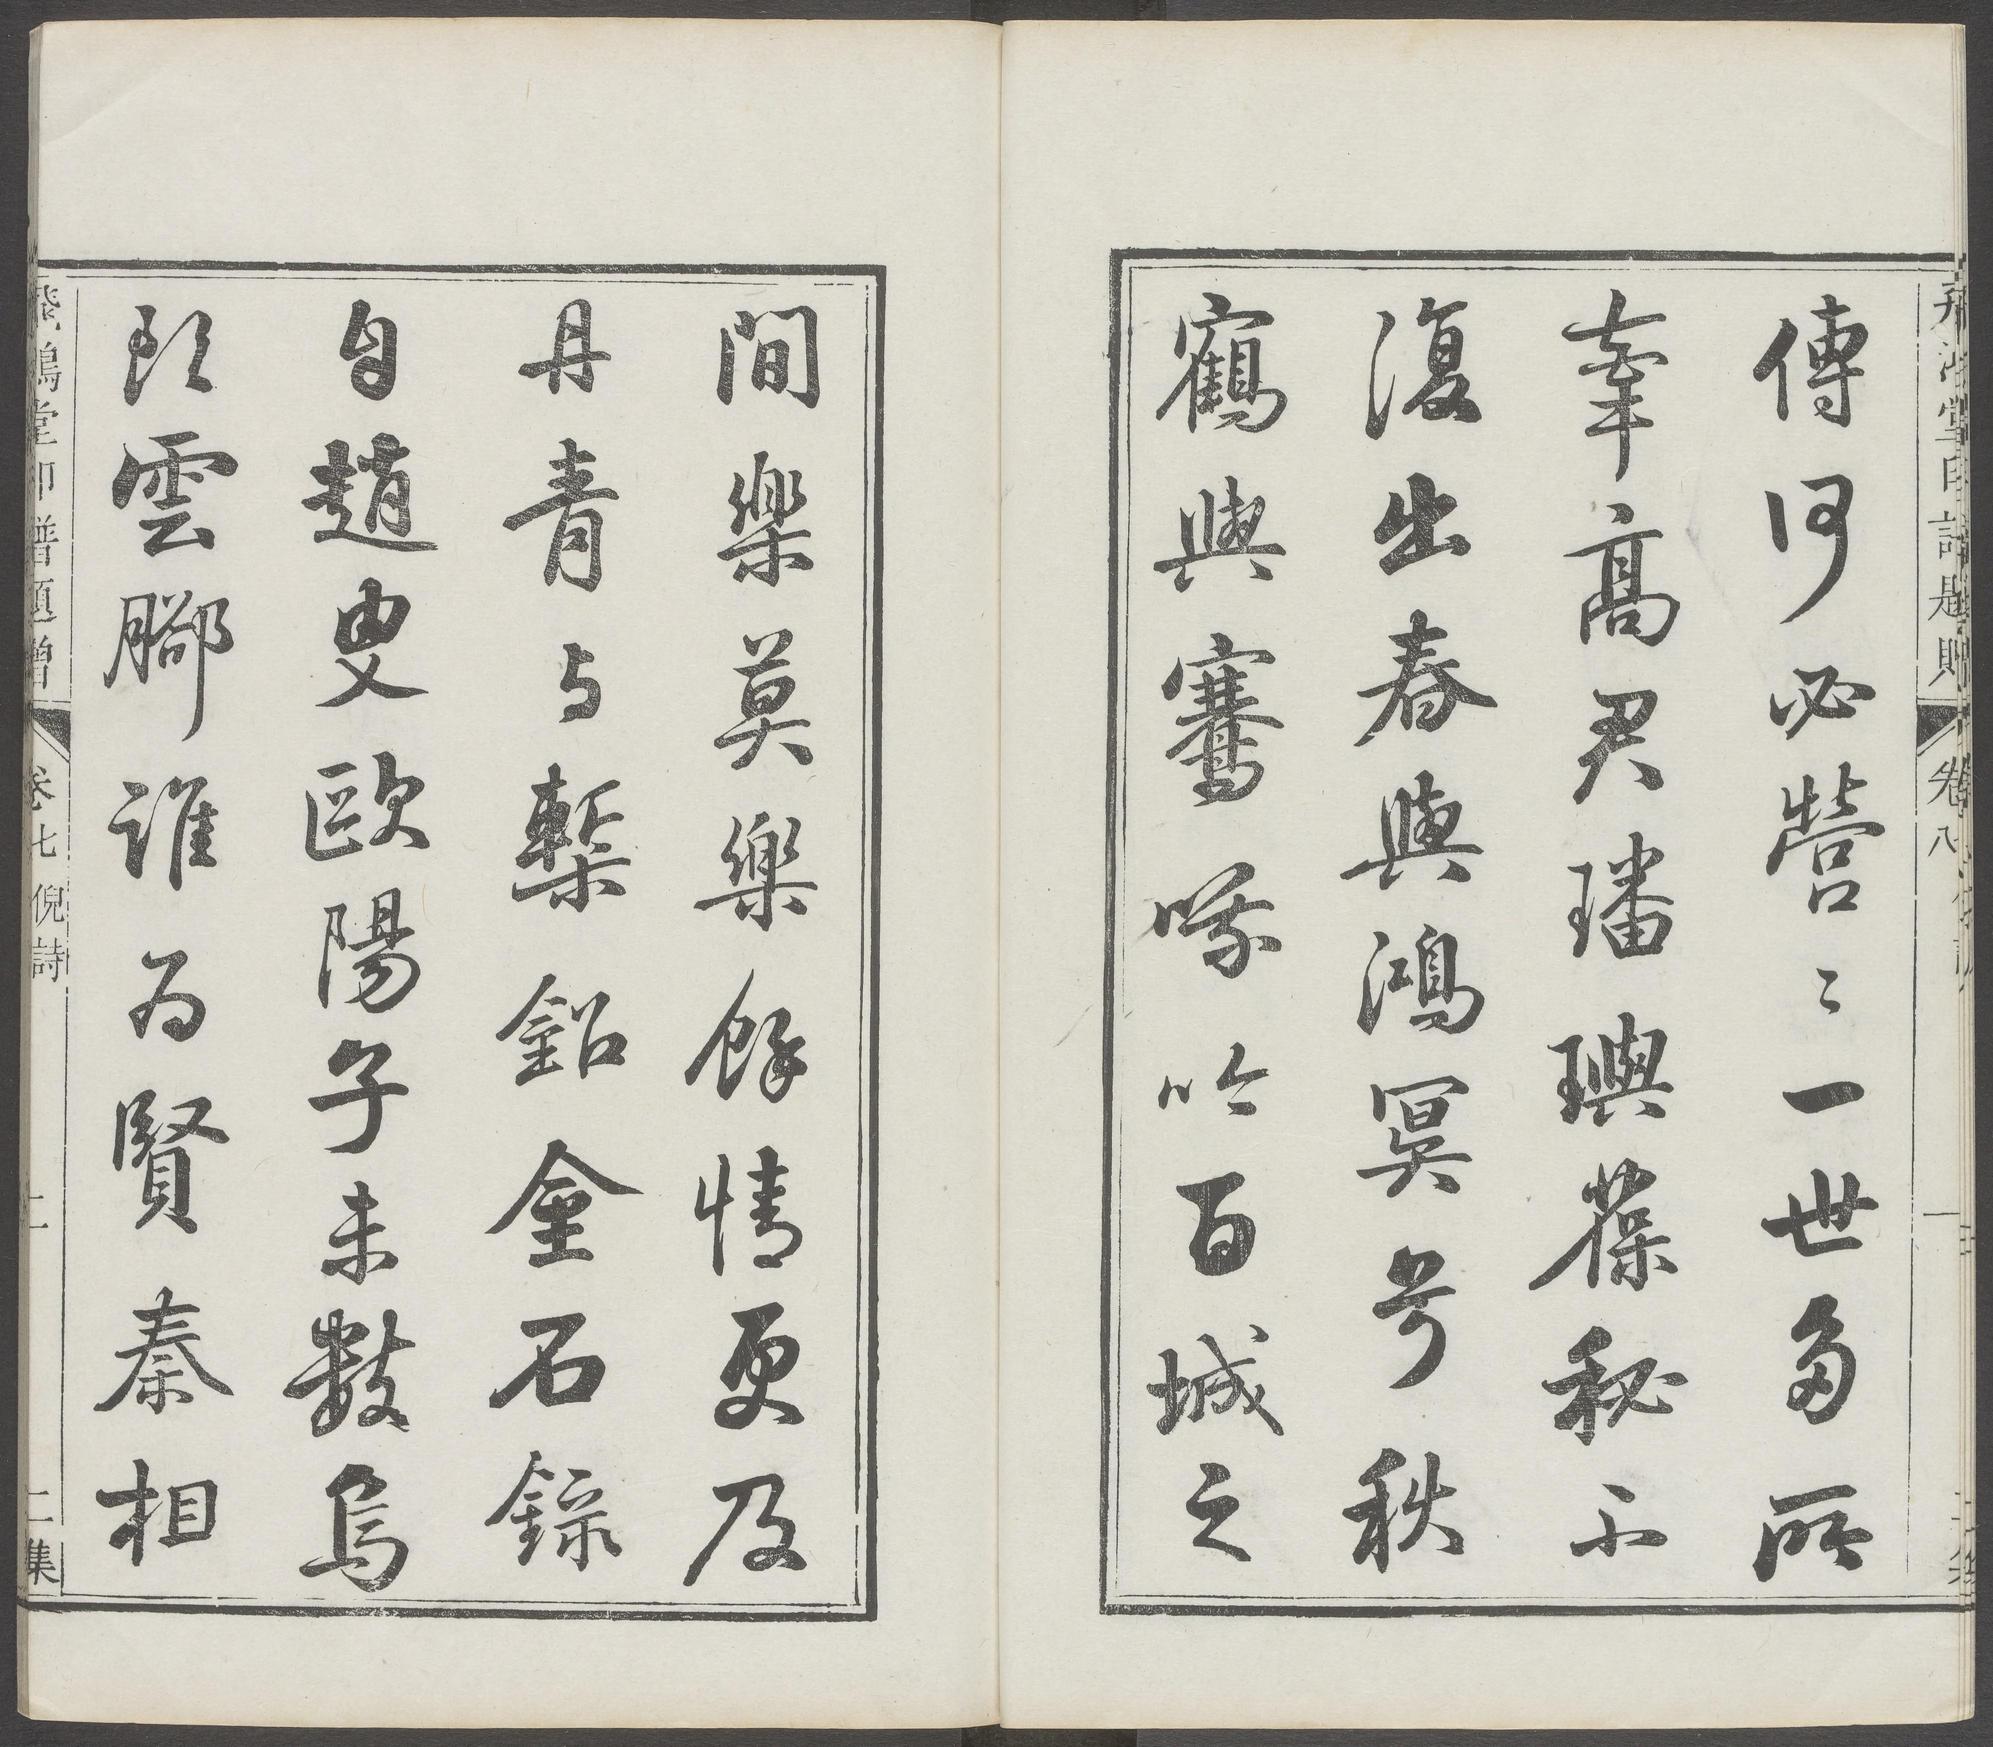 飛鴻堂印譜題贈 卷八 一
傳何必營〻一世多所
牽高君璠璵葆秘不
復出春與鴻冥兮秋
鶴與騫哦吟百城之
間樂莫樂餘情更及
丹青与槧鉛金石錄
自趙叟歐陽子未數烏
雲腳誰为賢秦相
飛鴻堂印譜題贈 卷七 倪詩 二 二集